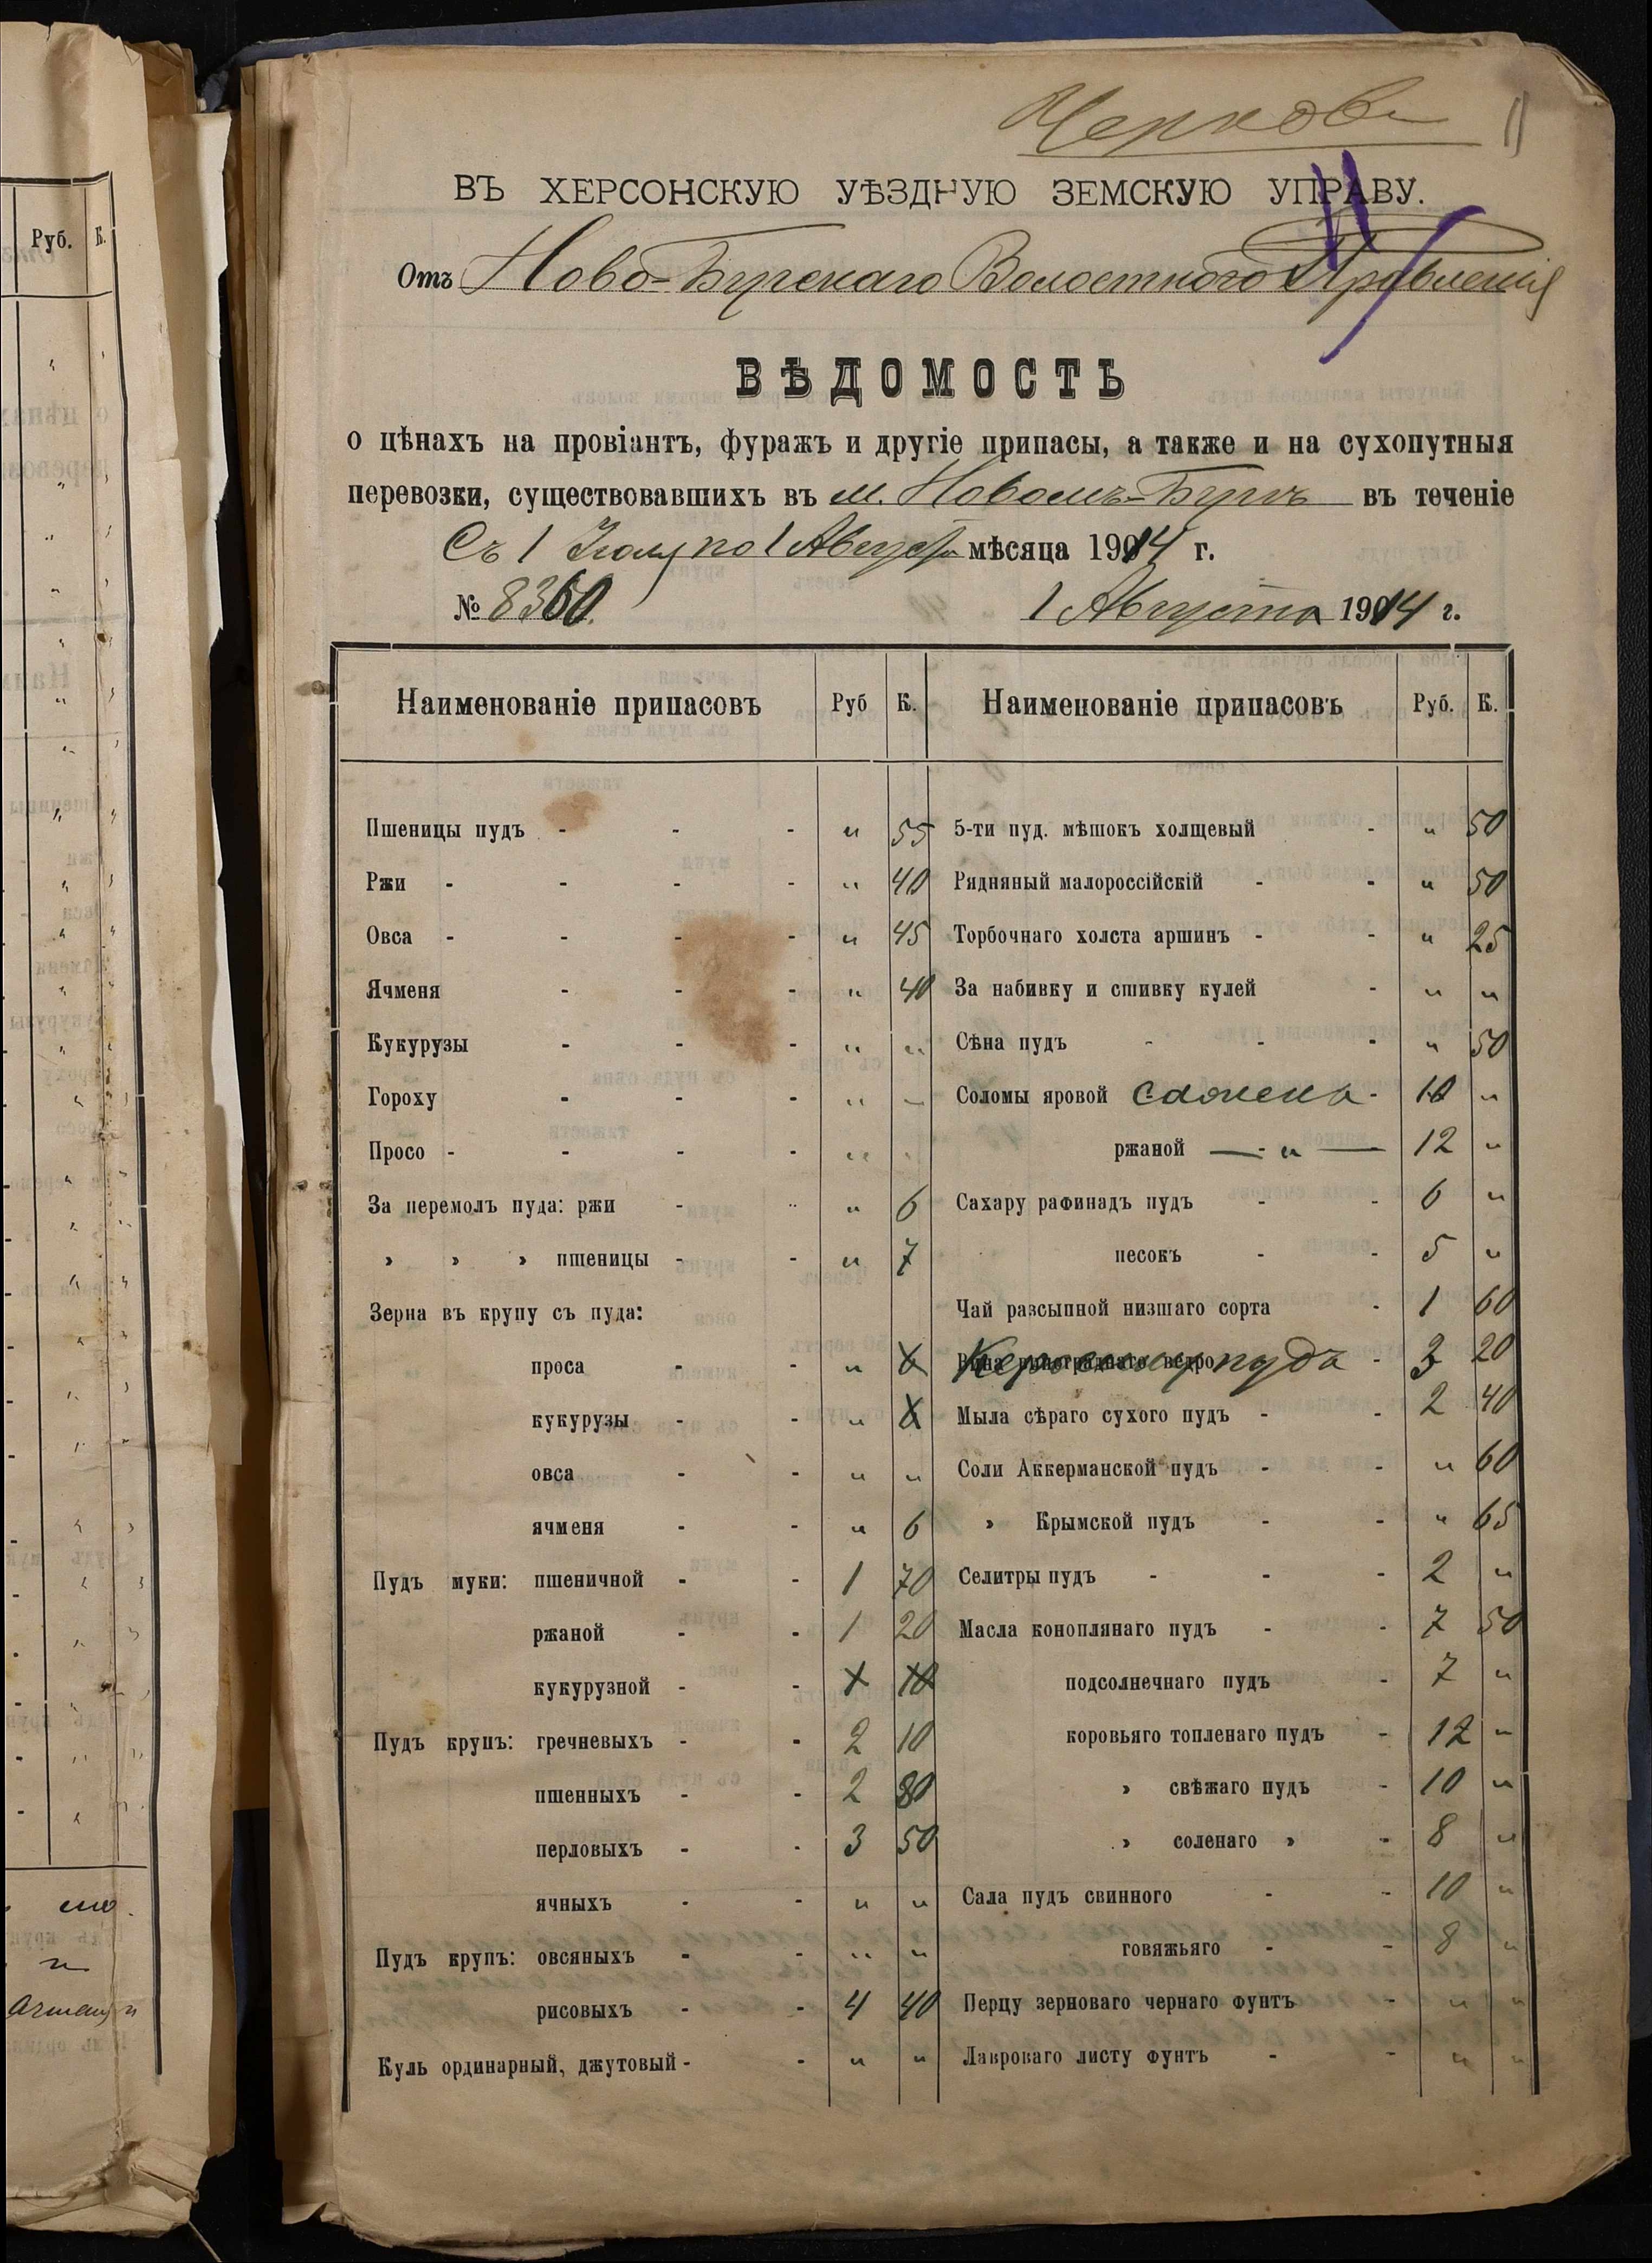 11
ВЪ ХЕРСОНСКУЮ УѢЗДНУЮ ЗЕМСКУЮ УПРАВУ.
Отъ Ново-Бугскаго Волостного Правленія
ВѢДОМОСТЬ
о цѣнахъ на провіантъ, фуражъ и другіе припасы, а также и на сухопутныя
перевозки, существовавшихъ въ м. Новомъ-Бугѣ въ теченіе
Съ 1 Іюля по 1 Августа мѣсяца 1914 г.
№ 8360.
1 Августа 1914 г.
Наименованіе припасовъ Руб К. Наименованіе припасовъ Руб. К.
Пшеницы пудъ - - - " 55 5-ти пуд. мѣшокъ холщевый - " 50
Ржи - - - - " 40 Рядняный малороссійскій - - " 50
Овса - - - - " 45 Торбочнаго холста аршинъ - - " 25
Ячменя - - - " 40 За набивку и сшивку кулей - " "
Кукурузы - - - " " Сѣна пудъ - - - " 50
Гороху - - - " " Соломы яровой сажень - 10 "
Просо - - - - " " ржаной — " — 12 "
За перемолъ пуда: ржи - - " 6 Сахару рафинадъ пудъ - - 6 "
» » » пшеницы - - " 7 песокъ - - 5 "
Зерна въ крупу съ пуда: Чай разсыпной низшаго сорта - 1 60
проса - - " Керосину пудъ - 3 20
кукурузы - - " Мыла сѣраго сухого пудъ - - 2 40
овса - - " " Соли Аккерманской пудъ - - " 60
ячменя - - " 6 » Крымской пудъ - - " 65
Пудъ муки: пшеничной - - 1 70 Селитры пудъ - - - 2 "
ржаной - - 1 20 Масла коноплянаго пудъ - - 7 50
кукурузной - - подсолнечнаго пудъ - 7 "
Пудъ крупъ: гречневыхъ - - 2 10 коровьяго топленаго пудъ - 12 "
пшенныхъ - - 2 80 » свѣжаго пудъ - 10 "
перловыхъ - - 3 50 » соленаго » - 8 "
ячныхъ - - " " Сала пудъ свинного - - 10 "
Пудъ крупъ: овсяныхъ - - " " говяжьяго - - 8 "
рисовыхъ - - 4 40 Перцу зерноваго чернаго фунтъ - " "
Куль ординарный, джутовый - - " " Лавроваго листу фунтъ - - " "
Руб. К.